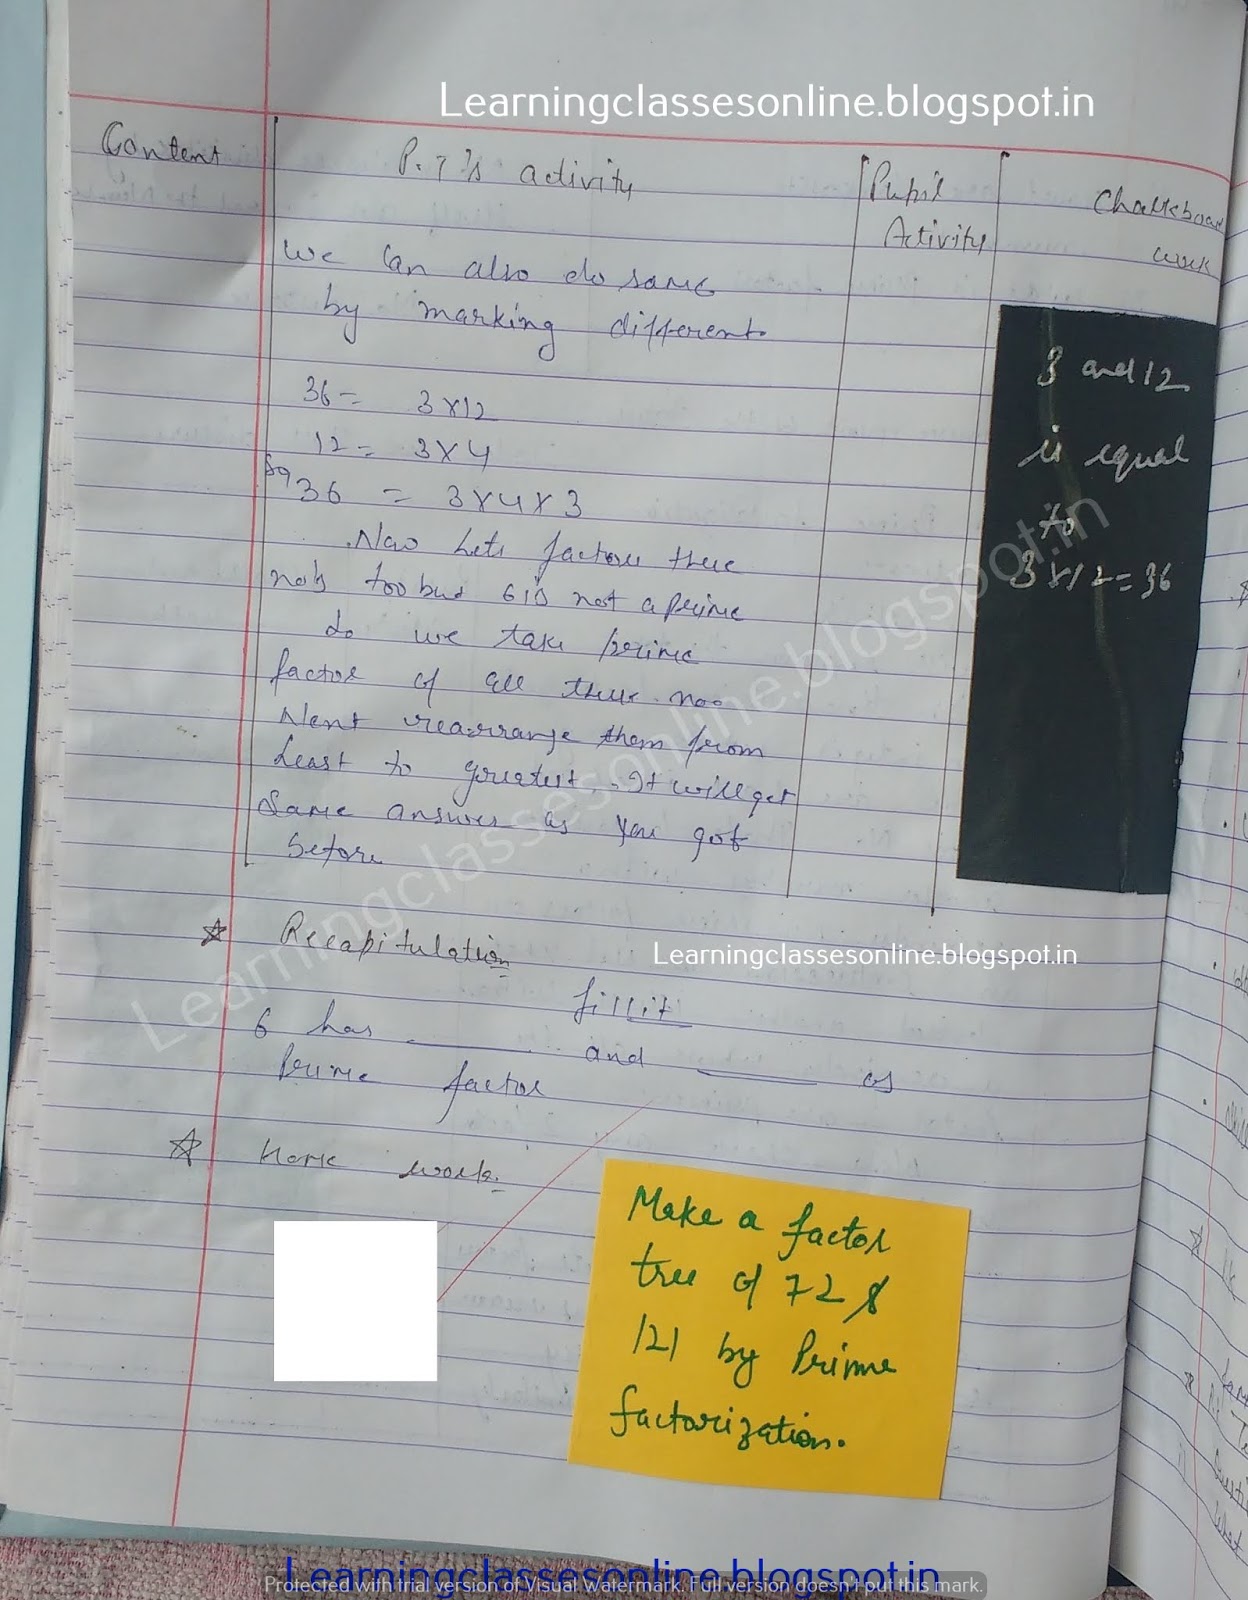 Learningclassesonline.blogspot.in
Content
P.T's activity
Pupil
Activity
Chalkboar
work
We can also do same
by marking different
36 = 3 x 12
12 = 3 x 4
So 36 = 3 x 4 x 3
Now Lets factor these
no's too but 6 is not a prime
do we take prime
factor of all these no.
Next rearrange them from
Least to greatest. It will get
Same answer as you got
before
3 and 12
is equal
to
3 x 12 = 36
Learningclassesonline.blogspot.in
☆ Recapitulation
Learningclassesonline.blogspot.in
fill it
6 has ______ and ______ as
Prime factor
☆ Home work.
Make a factor
tree of 72 &
121 by Prime
factorization.
Learningclassesonline.blogspot.in
Protected with trial version of Visual Watermark. Full version doesn't put this mark.